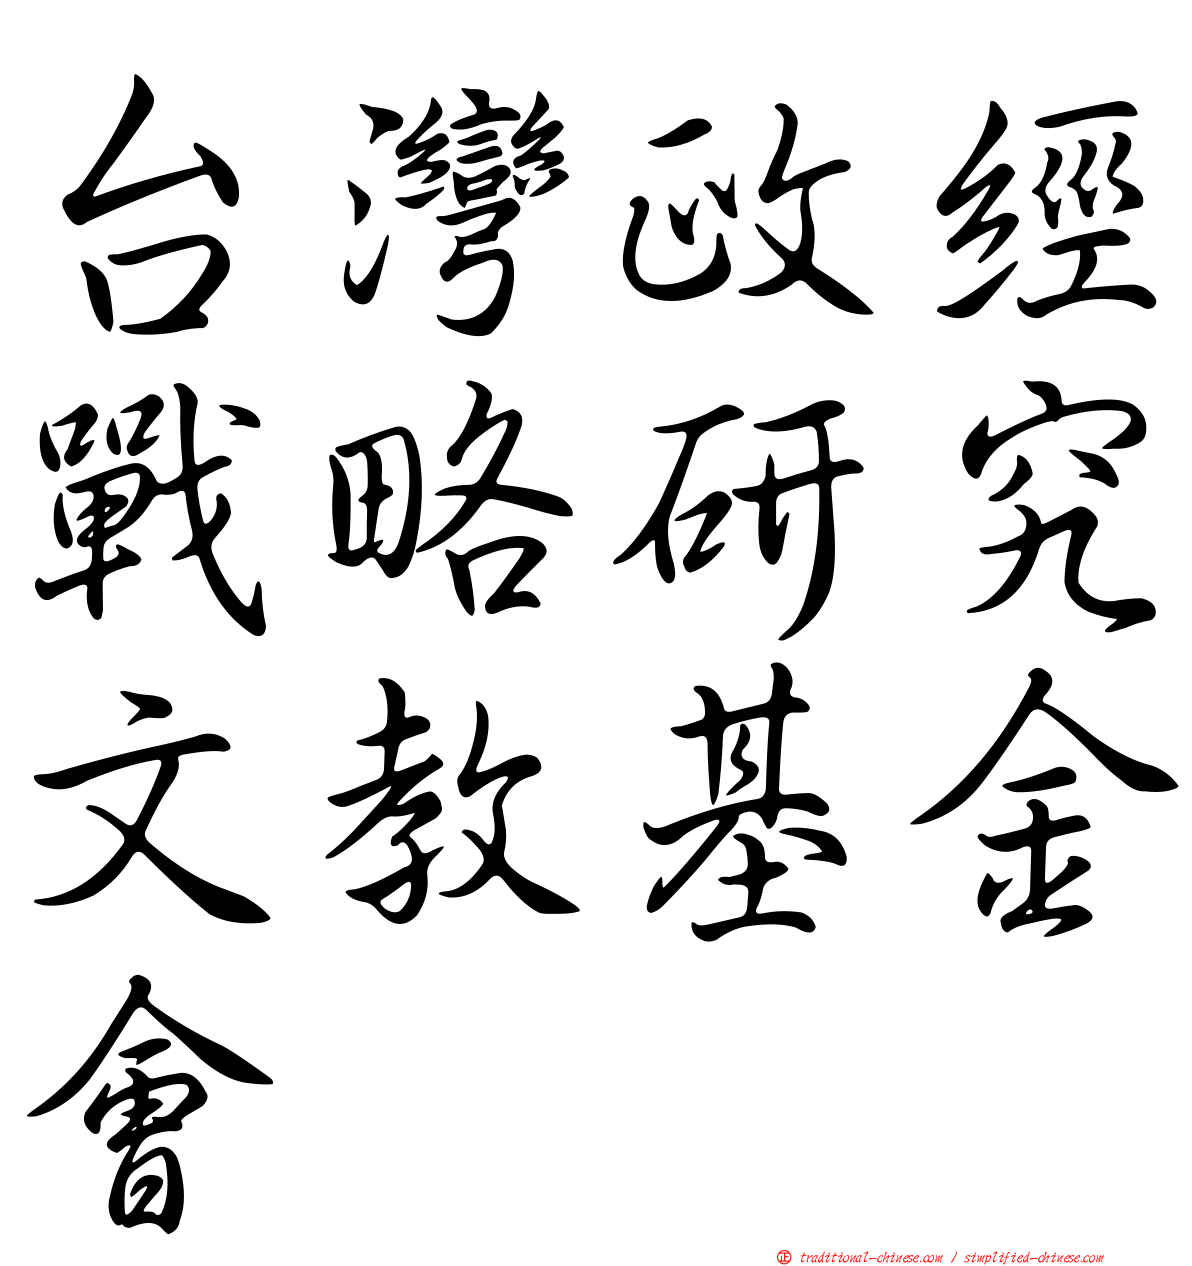 台灣政經
戰略研究
文教基金
會
正 traditional-chinese.com / simplified-chinese.com